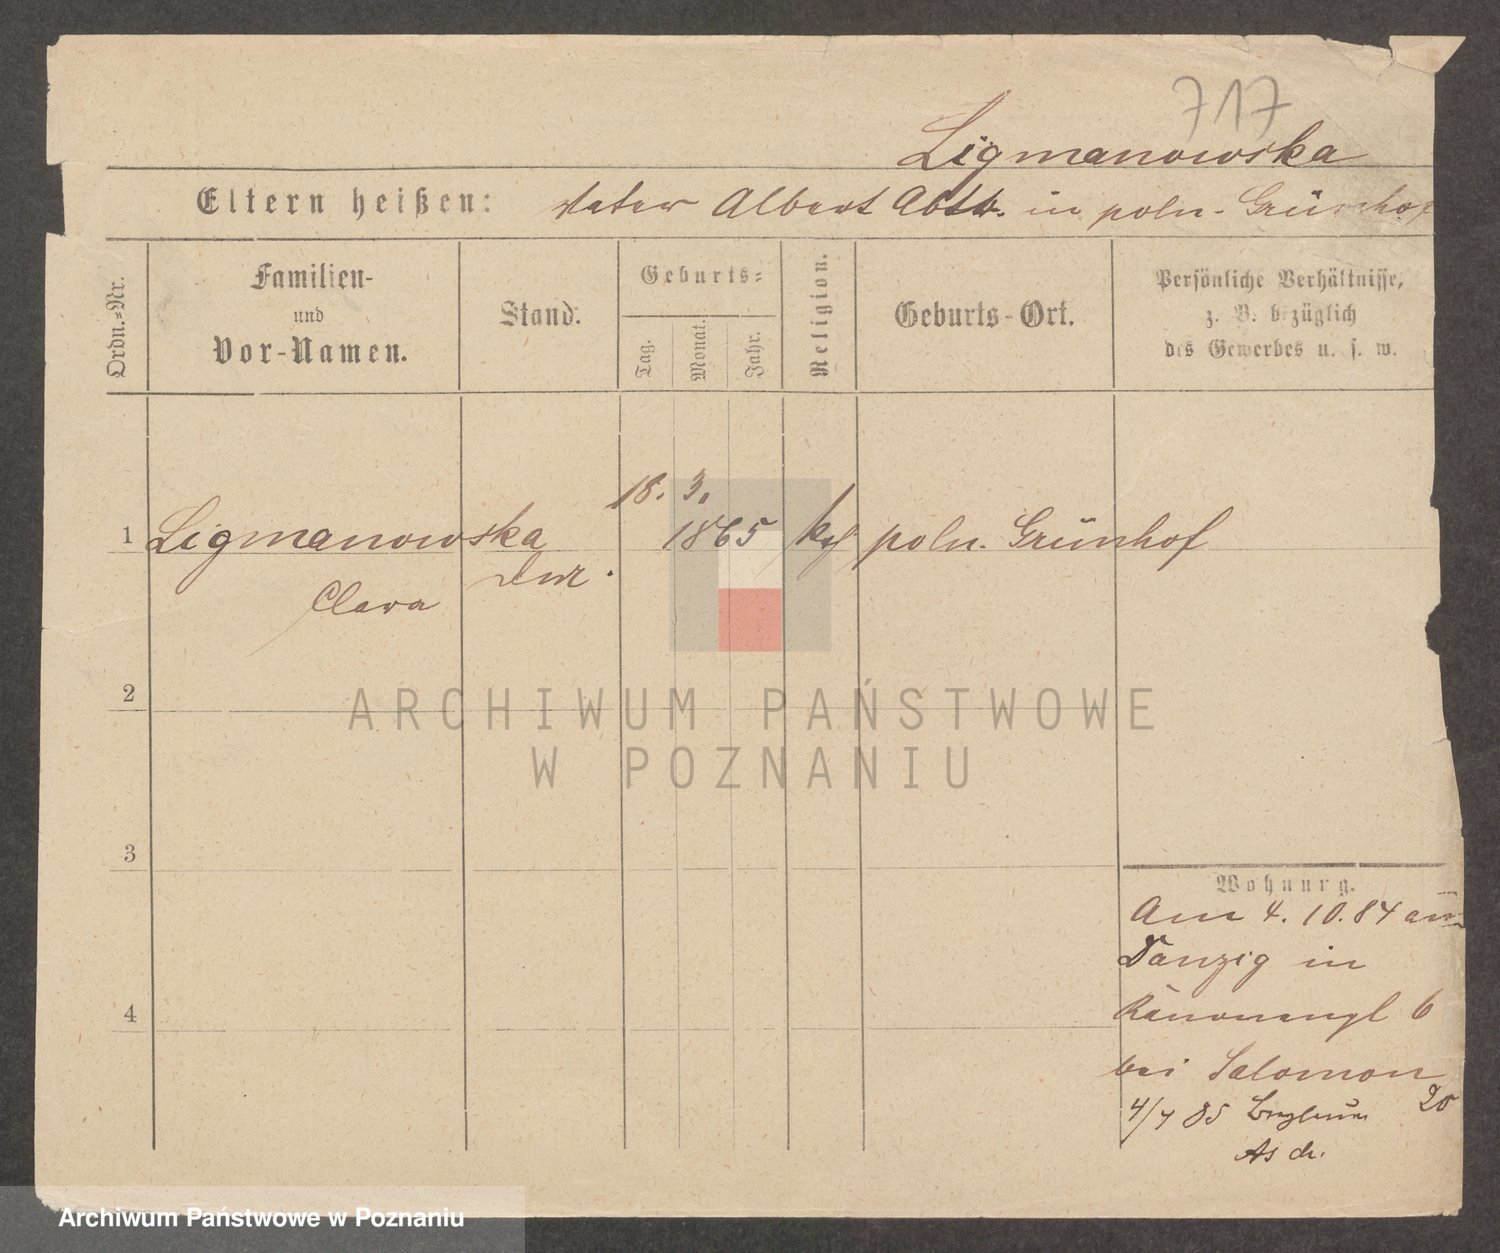 717
Ligmanowska
Eltern heißen: Vater Albert in poln. Grünhof
Ordn.-Nr.
Familien-
und
Vor-Namen.
Stand.
Geburts-
Tag.
Monat.
Jahr.
Religion.
Geburts-Ort.
Persönliche Verhältnisse,
z. B. bezüglich
des Gewerbes u. s. w.
18. 3.
1 Ligmanowska 1865 poln. Grünhof
Clara
2
ARCHIWUM PAŃSTWOWE
W POZNANIU
3
Wohnung.
Am 4. 10. 84 aus
Danzig in
6
bei Salomon
4/7 85 20
Archiwum Państwowe w Poznaniu